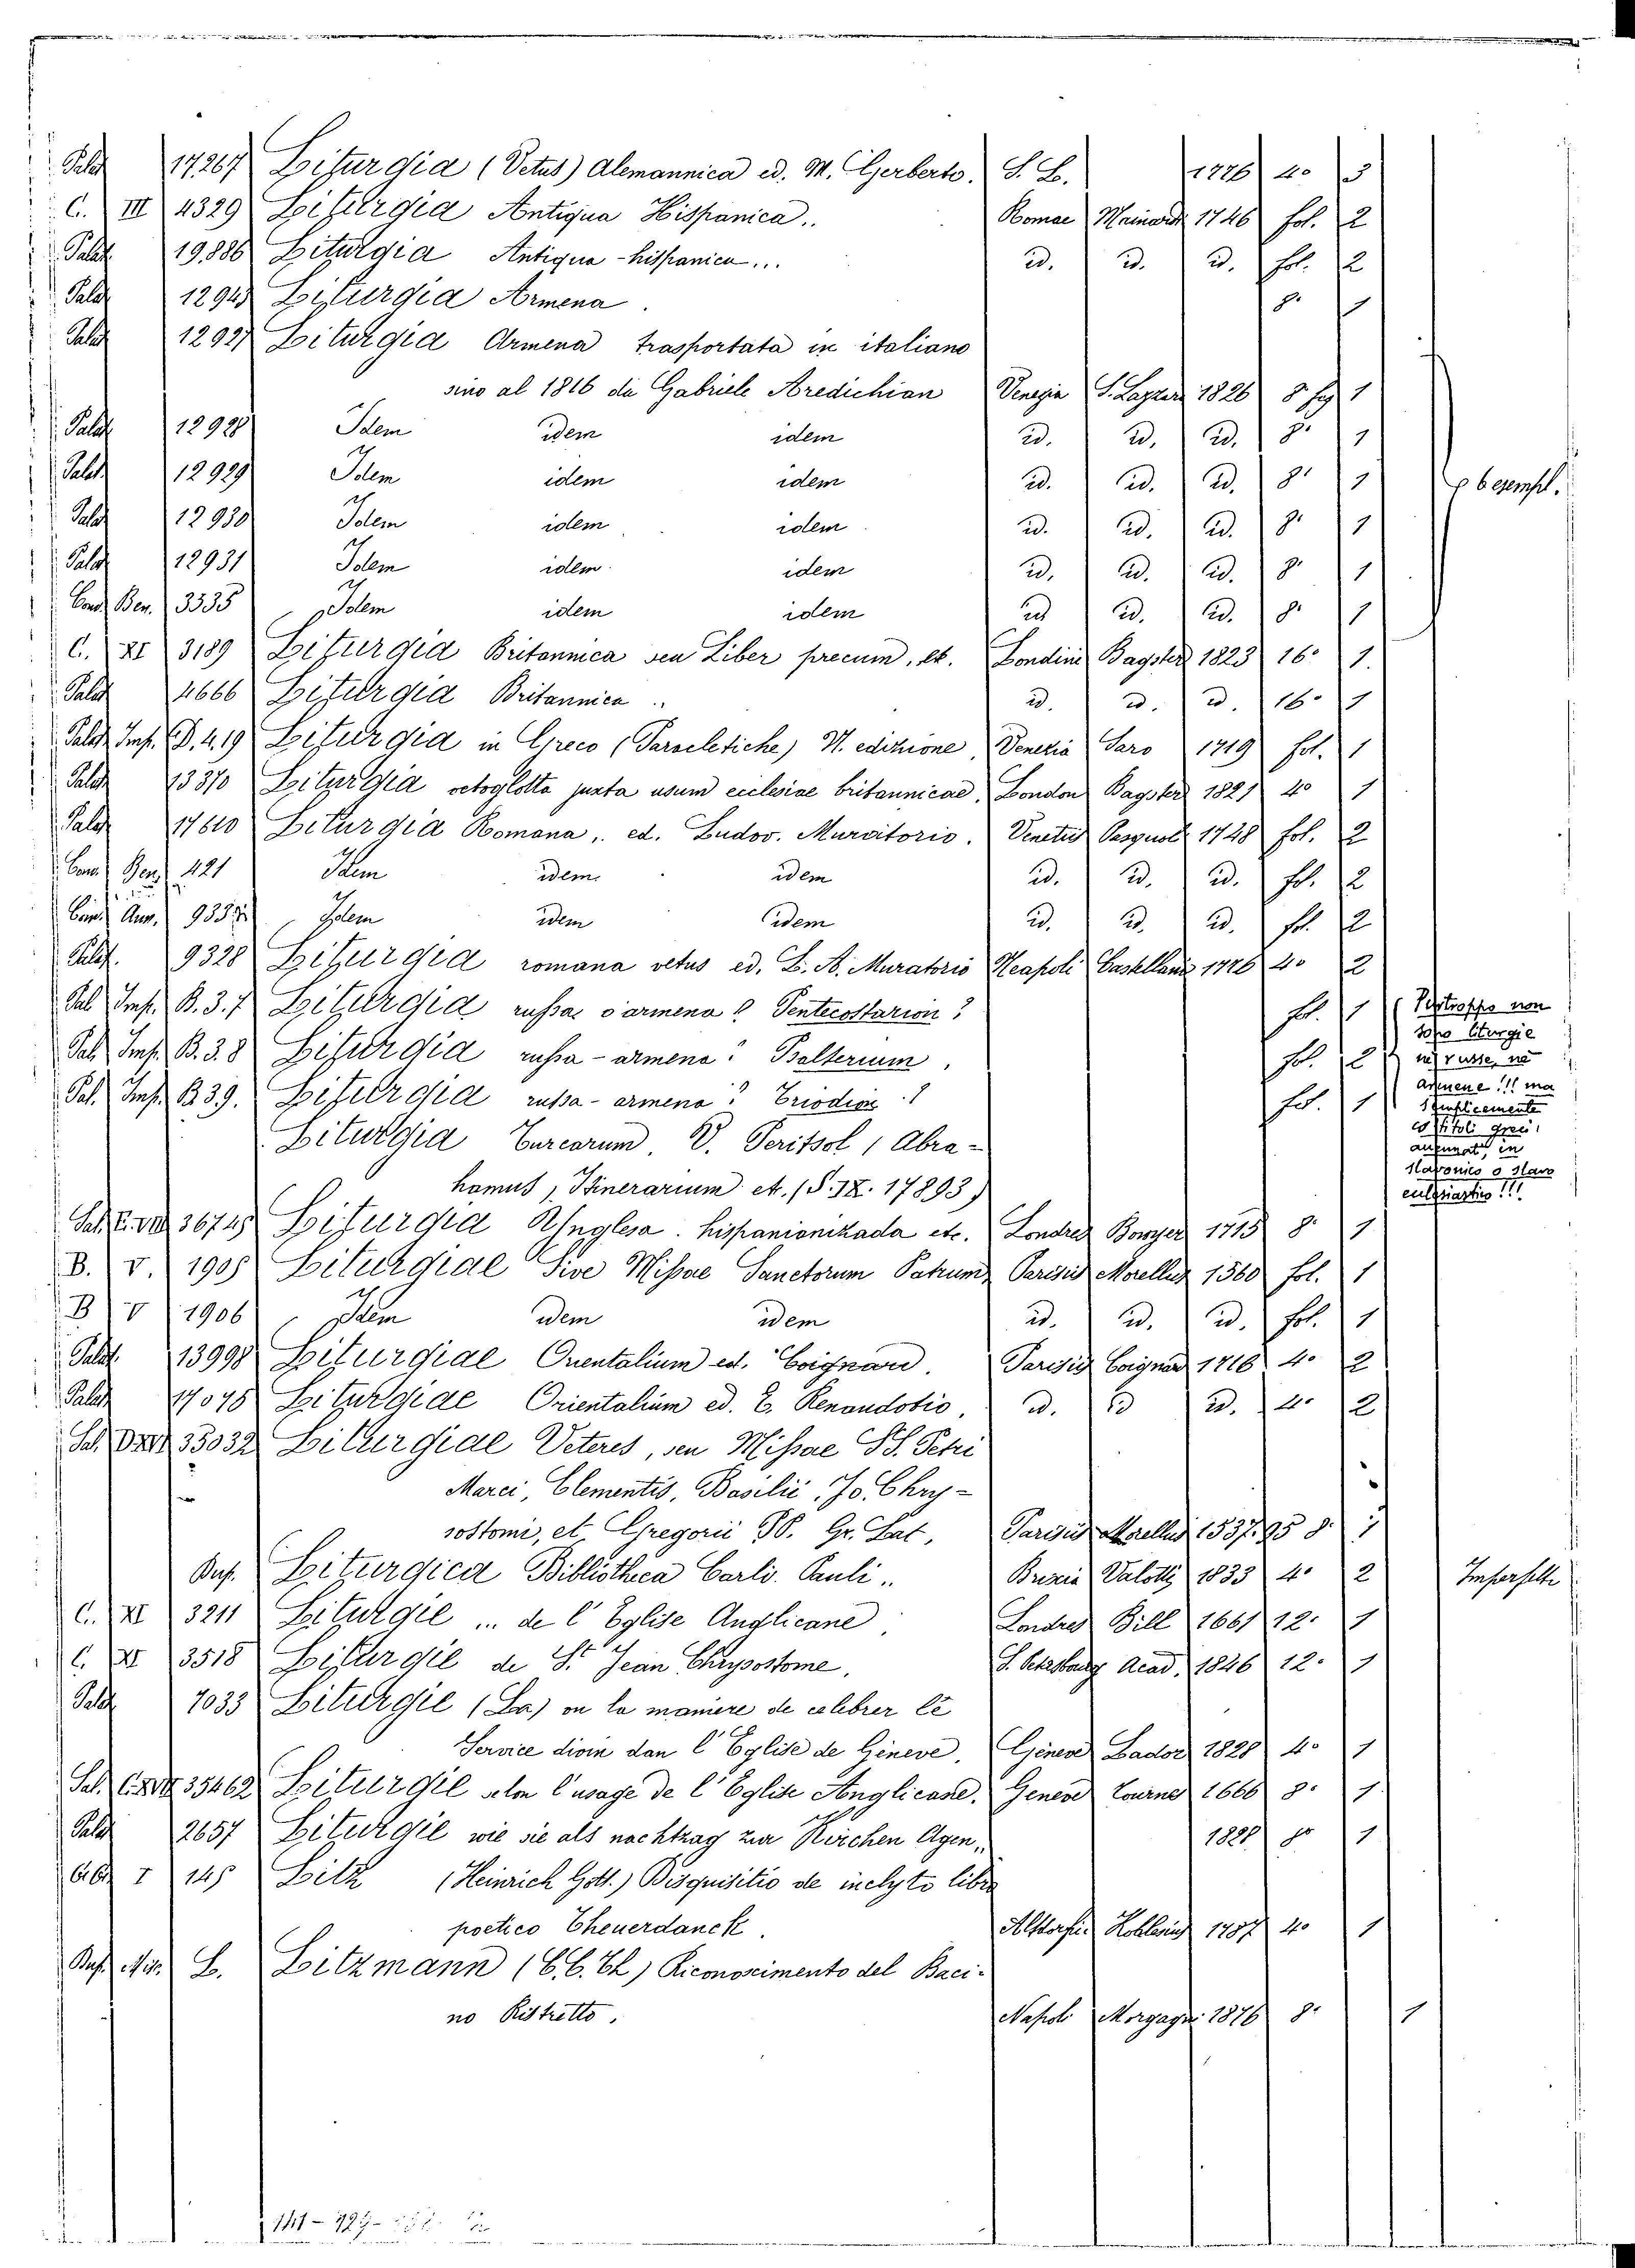 Palat 17,267 Liturgia (Vetus) Alemannica ed. M. Gerberto. S. L. 1776 4o 3
C. III 4329 Liturgia Antiqua Hispanica.. Romae Mainardi 1746 fol. 2
Palat. 19,886 Liturgia Antiqua-hispanica... id. id. id. fol. 2
Palat 12945 Liturgia Armena. 8o 1
Palat 12927 Liturgia Armena trasportata in italiano
sino al 1816 da Gabriele Aredichian Venezia S. Lazzaro 1826 8 1
Palat 12928 Idem idem idem id. id. id. 8o 1
Palat. 12929 Idem idem idem id. id. id. 8o 1 6 exempl.
Palat 12930 Idem idem idem id. id. id. 8o 1
Palat 12931 Idem idem idem id. id. id. 8o 1
Cond Ben. 3335 Idem idem idem id id. id. 8o 1
C. XI 3189 Liturgia Britannica seu Liber precum, et. Londini Bagster 1823 16o 1.
Palat 4666 Liturgia Britannica .. id. id. id. 16o 1
Palat Imp. D. 4. 19 Liturgia in Greco (Paracletiche) N. edizione Venezia Saro 1719 fol. 1
Palat 13370 Liturgia octoglotta juxta usum ecclesiae britannicae, London Bagster 1821 4o 1
Palat 17610 Liturgia Romana, ed. Ludov. Muratorio. Venetiis Pasquali 1748 fol. 2
Cond Ben. 421 Idem idem. idem id. id. id. fol. 2
Cond Aur. 9337 Idem idem idem id. id. id. fol. 2
Palat. 9328 Liturgia romana vetus ed. L. A. Muratorio Neapoli Castellano 1776 4o 2
Pal Imp. B. 3. 7 Liturgia russa o armena? Pentecostarion? fol. 1 Purtroppo non
sono liturgie
Pal Imp. B. 3. 8 Liturgia russa-armena? Psalterium, fol. 2 né russe, né
armene!!! ma
Pal. Imp. B 3 9. Liturgia russa-armena? Triodion! fol. 1 semplicemente
Liturgia Turcarum, V. Peritsol (Abra-
in
hamus), Itinerarium et. (S. IX. 17893) slavonico o slavo
ecclesiastico!!!
Sal. C. VIII 36745 Liturgia Ynglesa. hispanionizada etc. Londres Bowyer 1715 8o 1
B. V. 1905 Liturgiae Sive Missae Sanctorum Patrum, Parisiis Morellus 1560 fol. 1
B V 1906 Idem idem idem id. id. id. fol. 1
Palat. 13998 Liturgiae Orientalium ed. Coignard. Parisiis Coignar 1716 4o 2
Palat 17075 Liturgiae Orientalium ed. E. Renaudotio, id. id id. 4o 2
Sal. 35032 Liturgiae Veteres, seu Missae SS. Petri
Marci, Clementis, Basilii, Jo. Chry-
sostomi, et Gregorii PP. Gr. Lat, Parisiis Morellus 1537.95 8. 1
Buf. Liturgica Bibliotheca Carli. Pauli.. Brixia Valotti 1833 4o 2 Imperfetto
C. XI 3211 Liturgie ... de l'Eglise Anglicane, Londres Bill 1661 12o 1
C. XI 3518 Liturgie de St. Jean Chrysostome, S. Petersbourg Acad. 1846 12o 1
Palat 7033 Liturgie (La) ou la maniere de celebrer le
Service divin dan l'Eglise de Géneve, Géneve Lador 1828 4o 1
Sal. C. XVII 35462 Liturgie selon l'usage de l'Eglise Anglicane, Geneve Tourne 1666 8o 1
Palat 2657 Liturgie wie sie als nachtrag zur Kirchen Agen, 1828 8o 1
I 145 Litz (Heinrich Gott.) Disquisitio de inclyto libro
poetico Theuerdanck. Altdorfii Koblerius 1787 4o 1
Buf. Mis. L. Litzmann (C. C. Th) Riconoscimento del Baci-
no Ristretto. Napoli Morgagni 1876 8o 1